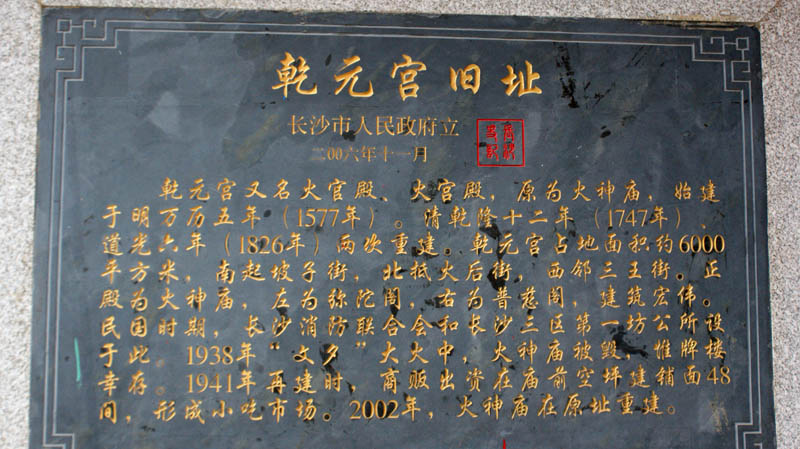 乾元宫旧址
长沙市人民政府立
二00六年十一月
乾元宫又名火官殿、火宫殿，原为火神庙，始建
于明万历五年（1577年）。清乾隆十二年（1747年）、
道光六年（1826年）两次重建。乾元宫占地面积约6000
平方米，南起坡子街，北抵火后街，西邻三王街。正
殿为火神庙，左为弥陀阁，右为普慈阁，建筑宏伟。
民国时期，长沙消防联合会和长沙三区第一坊公所设
于此。1938年“文夕”大火中，火神庙被毁，惟牌楼
幸存。1941年再建时，商贩出资在庙前空坪建铺面48
间，形成小吃市场。2002年，火神庙在原址重建。